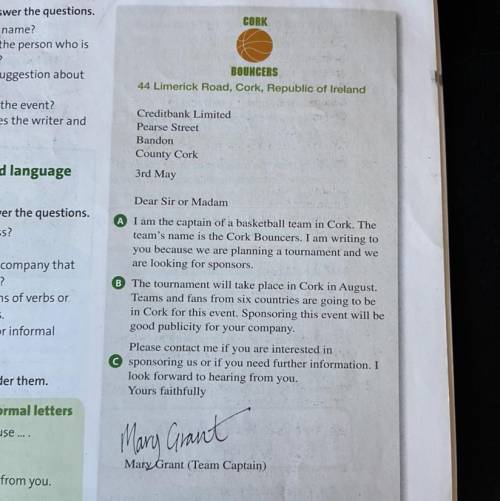 swer the questions.
name?
the person who is
?
uggestion about
the event?
es the writer and
d language
ver the questions.
ss?
company that
?
ns of verbs or
s.
or informal
der them.
ormal letters
use ... .
from you.
CORK
BOUNCERS
44 Limerick Road, Cork, Republic of Ireland
Creditbank Limited
Pearse Street
Bandon
County Cork
3rd May
Dear Sir or Madam
A I am the captain of a basketball team in Cork. The
team's name is the Cork Bouncers. I am writing to
you because we are planning a tournament and we
are looking for sponsors.
B The tournament will take place in Cork in August.
Teams and fans from six countries are going to be
in Cork for this event. Sponsoring this event will be
good publicity for your company.
Please contact me if you are interested in
C sponsoring us or if you need further information. I
look forward to hearing from you.
Yours faithfully
Mary Grant
Mary Grant (Team Captain)